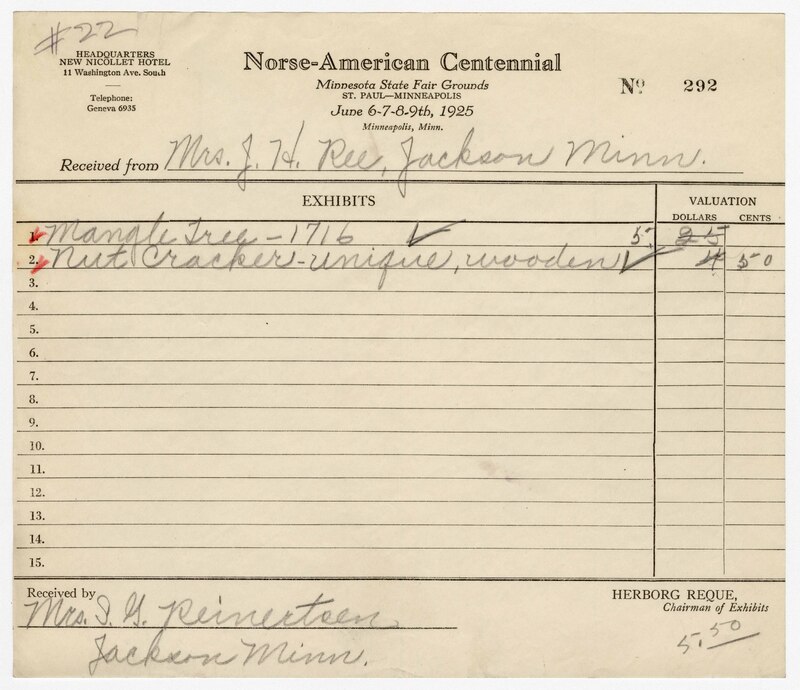 #22
HEADQUARTERS
NEW NICOLLET HOTEL
11 Washington Ave. South
Telephone:
Geneva 6935
Norse-American Centennial
Minnesota State Fair Grounds
ST. PAUL—MINNEAPOLIS
June 6-7-8-9th, 1925
Minneapolis, Minn.
No 292
Received from Mrs. J. H. Ree, Jackson Minn.
EXHIBITS
VALUATION
DOLLARS CENTS
1. Mangle Tree - 1716 5 25
2. Nut Cracker - unique, wooden 4 50
3.
4.
5.
6.
7.
8.
9.
10.
11.
12.
13.
14.
15.
Received by
Mrs. I. G. Reinertsen
Jackson Minn.
HERBORG REQUE,
Chairman of Exhibits
5.50